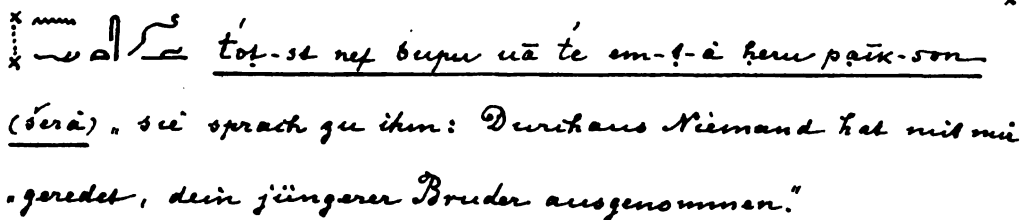 t́ot-st nef bupu uā t́e em-ṭ-à ḥeru paīk-son
(šerà) „ sie sprach zu ihm: Durchaus Niemand hat mit mir
„geredet, dein jüngerer Bruder ausgenommen."